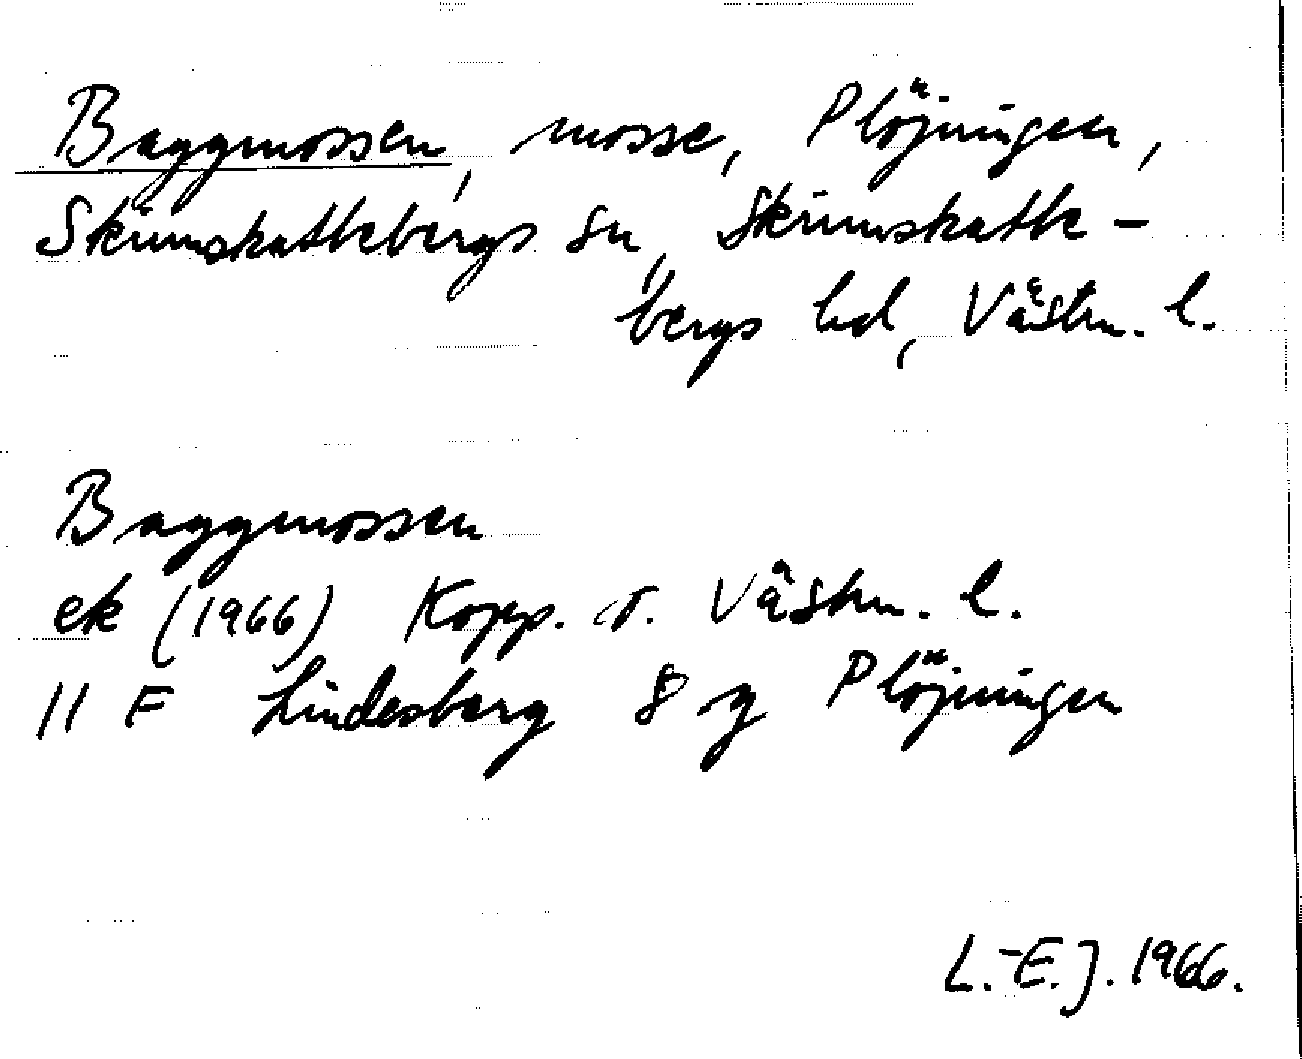 Baggmossen, mosse, Plöjningen,
Skinnskattebergs sn, Skinnskatte-
bergs hd, Västm. l.
Baggmossen
ek (1966) Kopp. o. Västm. l.
11 F Lindesberg 8 g Plöjningen
L.-E.J. 1966.